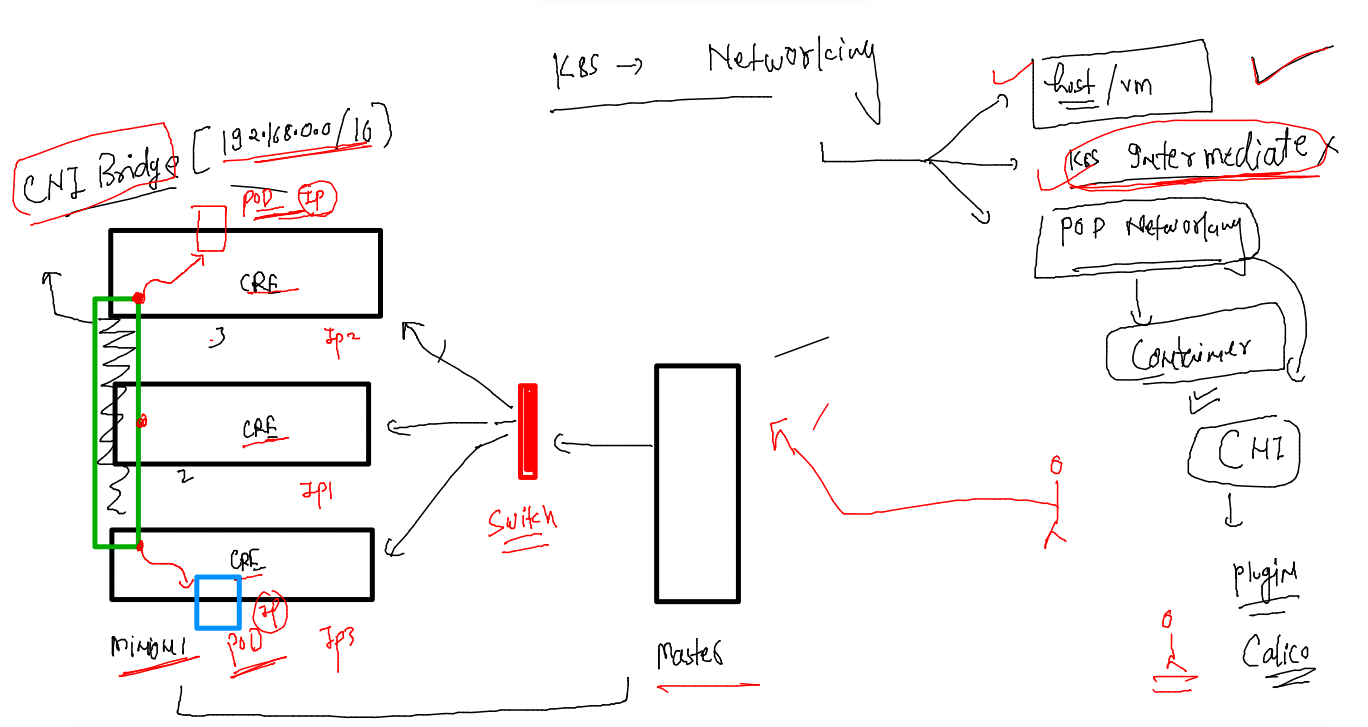 K8S → Networking
host/vm
K8S Intermediate
POD Networking
Container
CNI
plugin
Calico
CNI Bridge [192.168.0.0/16]
POD IP
CRE
3
Ip2
CRE
2
Ip1
CRE
IP
Minion1
POD
Ip3
Switch
Master